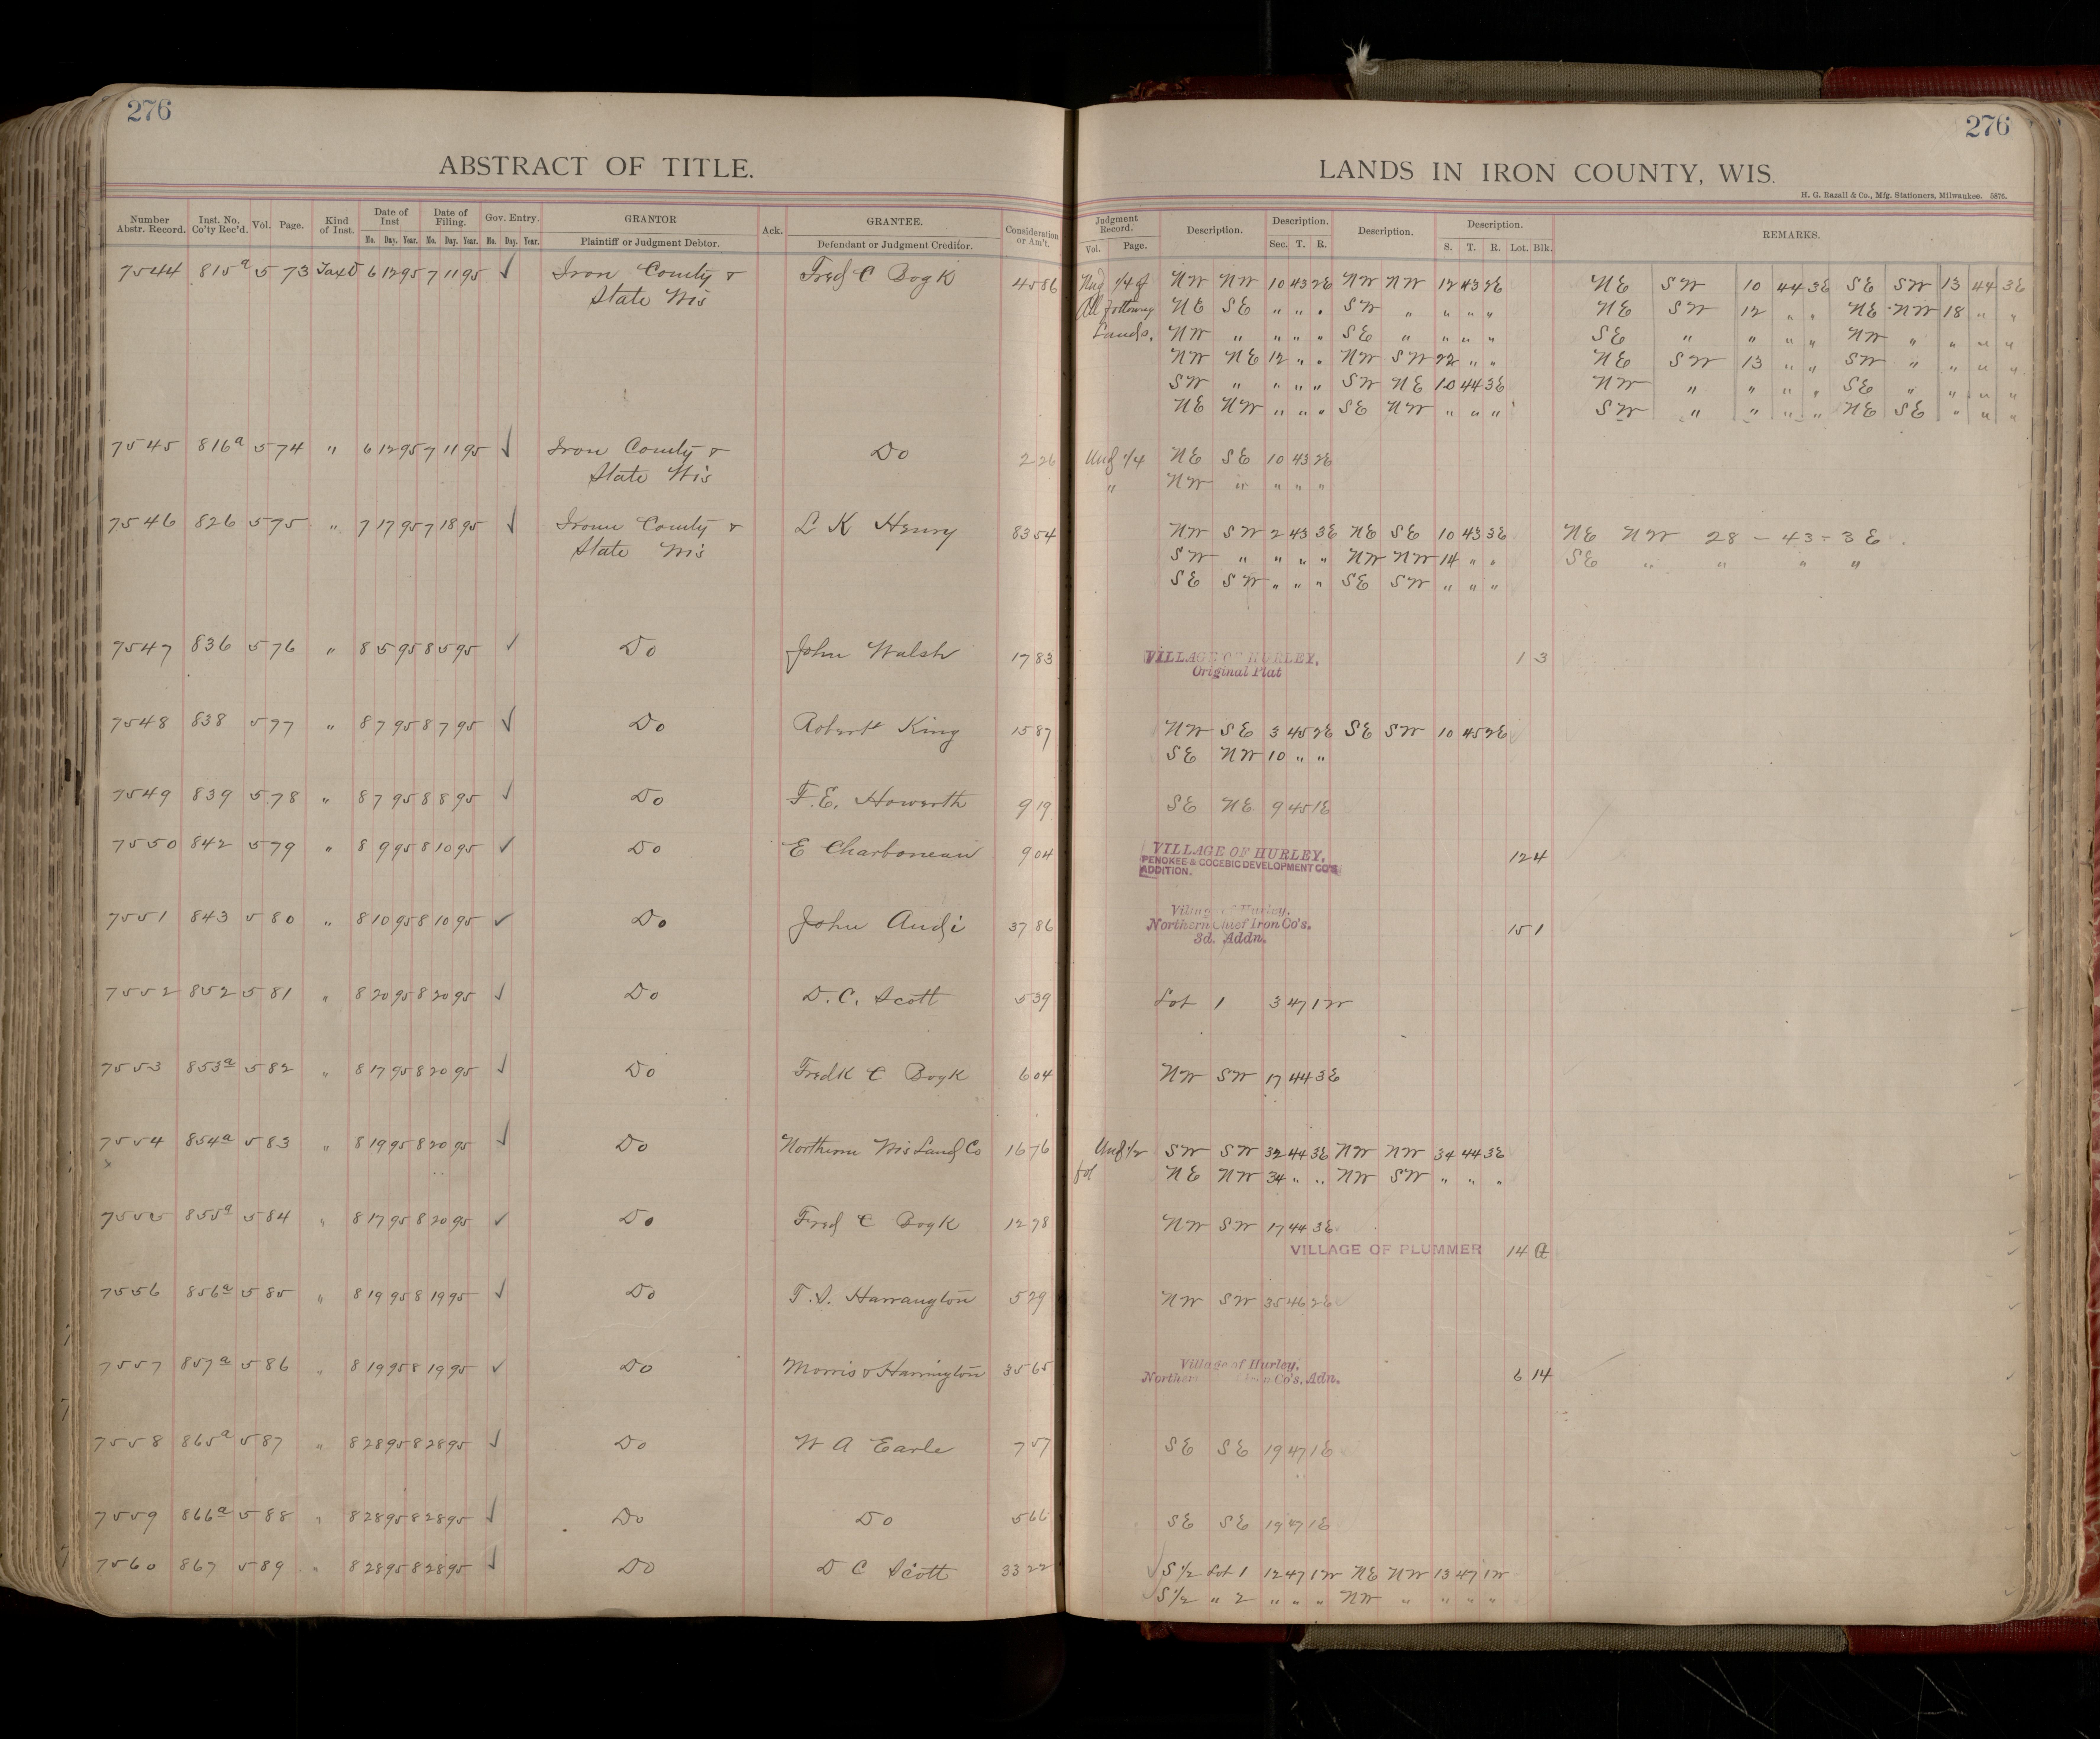 276
ABSTRACT OF TITLE.
Number Abstr. Record. Inst. No. Co'ty Rec'd. Vol. Page. Kind of Inst. Date of Inst Mo. Day. Year. Date of Filing. Mo. Day. Year. Gov. Entry. Mo. Day. Year. GRANTOR Plaintiff or Judgment Debtor. Ack. GRANTEE. Defendant or Judgment Creditor. Consideration or Am't.
7544 815a 5 73 Tax D 6 12 95 7 11 95 ✓ Iron County & Fred C Bogk 45 86
State Wis
7545 816a 5 74 " 6 12 95 7 11 95 ✓ Iron County & Do 2 26
State Wis
7546 826 5 75 " 7 17 95 7 18 95 ✓ Iron County & L K Henry 83 54
State Wis
7547 836 5 76 " 8 5 95 8 5 95 ✓ Do John Walsh 17 83
7548 838 5 77 " 8 7 95 8 7 95 ✓ Do Robert King 15 87
7549 839 5 78 " 8 7 95 8 8 95 ✓ Do F. E. Howorth 9 19
7550 842 5 79 " 8 9 95 8 10 95 ✓ Do E Charboneau 9 04
7551 843 5 80 " 8 10 95 8 10 95 ✓ Do John Audi 37 86
7552 852 5 81 " 8 20 95 8 20 95 ✓ Do D. C. Scott 5 39
7553 853a 5 82 " 8 17 95 8 20 95 ✓ Do Fredk C Bogk 6 04
7554 854a 5 83 " 8 19 95 8 20 95 ✓ Do Northern Wis Land Co 16 76
7555 855a 5 84 " 8 17 95 8 20 95 ✓ Do Fred C Bogk 12 78
7556 856a 5 85 " 8 19 95 8 19 95 ✓ Do T. S. Harrangton 5 29
7557 857a 5 86 " 8 19 95 8 19 95 ✓ Do Morris & Harrington 35 65
7558 865a 5 87 " 8 28 95 8 28 95 ✓ Do W A Earle 7 57
7559 866a 5 88 " 8 28 95 8 28 95 ✓ Do Do 5 66
7560 867 5 89 " 8 28 95 8 28 95 ✓ Do D C Scott 33 22
276
LANDS IN IRON COUNTY, WIS.
H. G. Razall & Co., Mfg. Stationers, Milwaukee. 5876.
Judgment Record. Vol. Page. Description. Description. Sec. T. R. Description. Description. S. T. R. Lot. Blk. REMARKS.
Und 1/4 of NW NW 10 43 2E NW NW 12 43 2E NE SW 10 44 3E SE SW 13 44 3E
All following NE SE " " " SW " " " " NE SW 12 " " NE NW 18 " "
Lands. NW " " " " SE " " " " SE " " " " NW " " " "
NW NE 12 " " NW SW 22 " " NE SW 13 " " SW " " " "
SW " " " " SW NE 10 44 3E NW " " " " SE " " " "
NE NW " " " SE NW " " " SW " " " " NE SE " " "
Und 1/4 NE SE 10 43 2E
" NW " " " "
NW SW 2 43 3E NE SE 10 43 3E NE NW 28 - 43 - 3E
SW " " " " NW NW 14 " " SE " " " "
SE SW " " " SE SW " " "
VILLAGE OF HURLEY, 1 3
Original Plat
NW SE 3 45 2E SE SW 10 45 2E
SE NW 10 " "
SE NE 9 45 1E
VILLAGE OF HURLEY, 12 4
PENOKEE & GOGEBIC DEVELOPMENT CO'S
ADDITION.
Village of Hurley,
Northern Chief Iron Co's, 15 1
3d. Addn.
Lot 1 3 47 1W
NW SW 17 44 3E
Und 1/2 SW SW 32 44 3E NW NW 34 44 3E
of NE NW 34 " " NW SW " " "
NW SW 17 44 3E
VILLAGE OF PLUMMER 14 A
NW SW 35 46 2E
Village of Hurley,
Northern Iron Co's, Adn. 6 14
SE SE 19 47 1E
SE SE 19 47 1E
✓ S 1/2 Lot 1 12 47 1W NE NW 13 47 1W
✓ S 1/2 " 2 " " " NW " " " "